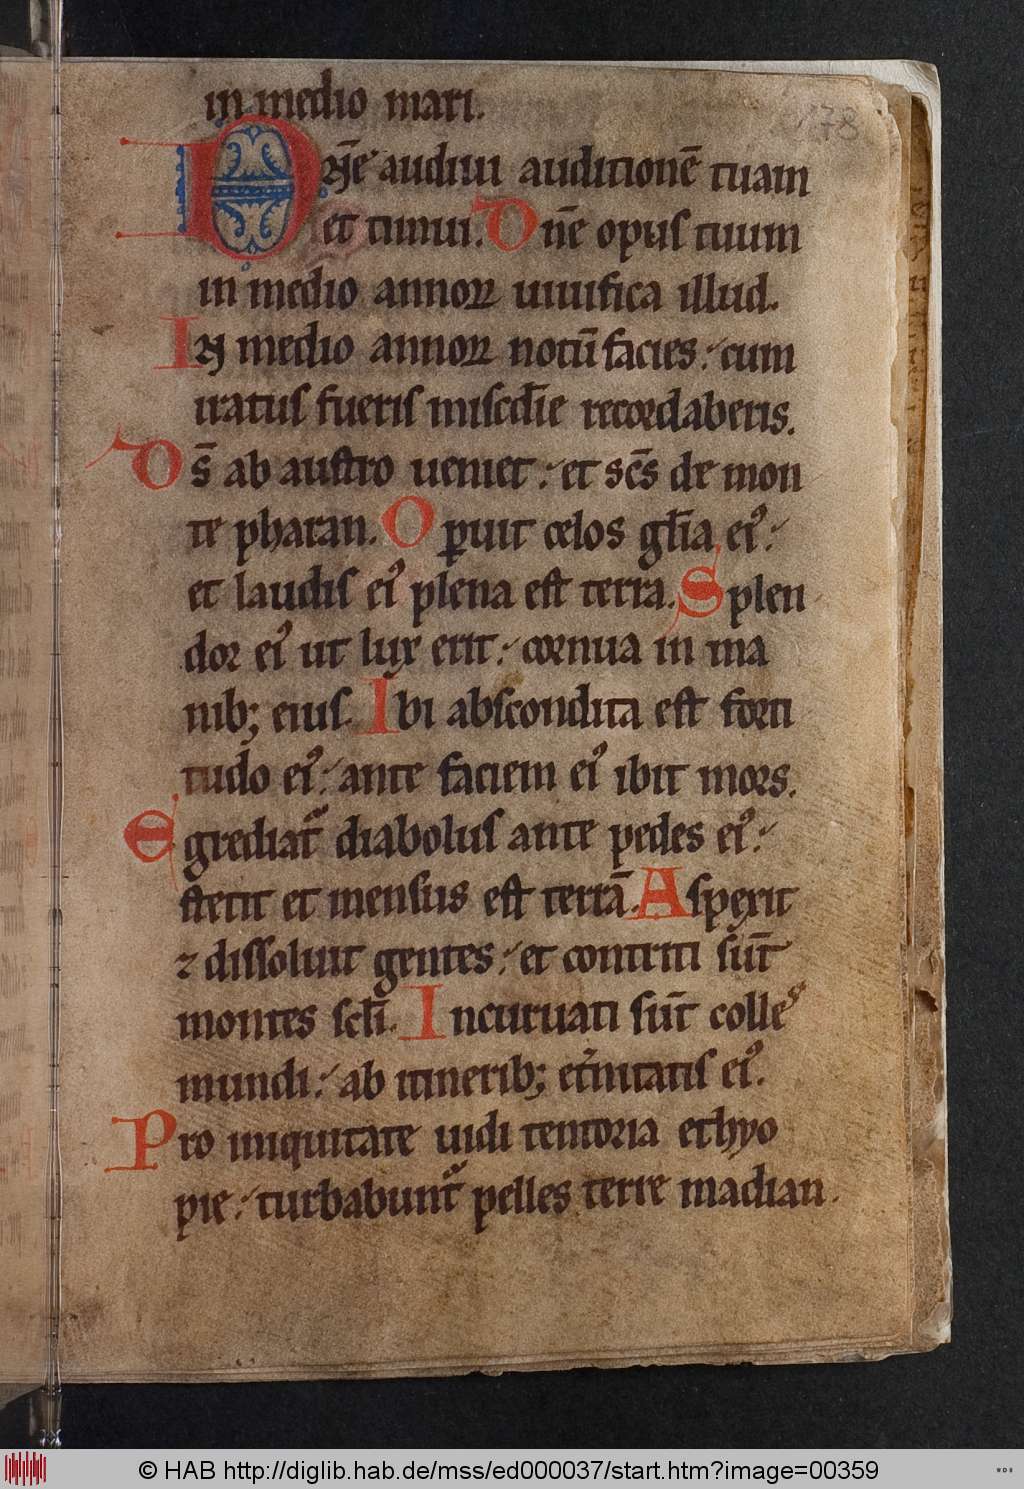 in medio mari.
178
Dn̄e audiui auditionē tuam
et timui. Dn̄e opus tuum
in medio annoꝝ uiuifica illud.
In medio annoꝝ notū facies: cum
iratus fueris misc̄die recordaberis.
Ds̄ ab austro ueniet: et sc̄s de mon
te pharan. Operuit celos gl̄ia ei᾽:
et laudis ei᾽ plena est terra. Splen
dor ei᾽ ut lux erit: cornua in ma
nib; eius. Ibi abscondita est forti
tudo ei᾽: ante faciem ei᾽ ibit mors.
Egrediat᷑ diabolus ante pedes ei᾽:
stetit et mensus est terrā. Aspexit
⁊ dissoluit gentes: et contriti sūt
montes scl̄i. Incuruati sūt colles
mundi: ab itinerib; et̄nitatis ei᾽.
Pro iniquitate uidi tentoria ethyo
pie: turbabunt᷑ pelles terre madian.
© HAB http://diglib.hab.de/mss/ed000037/start.htm?image=00359